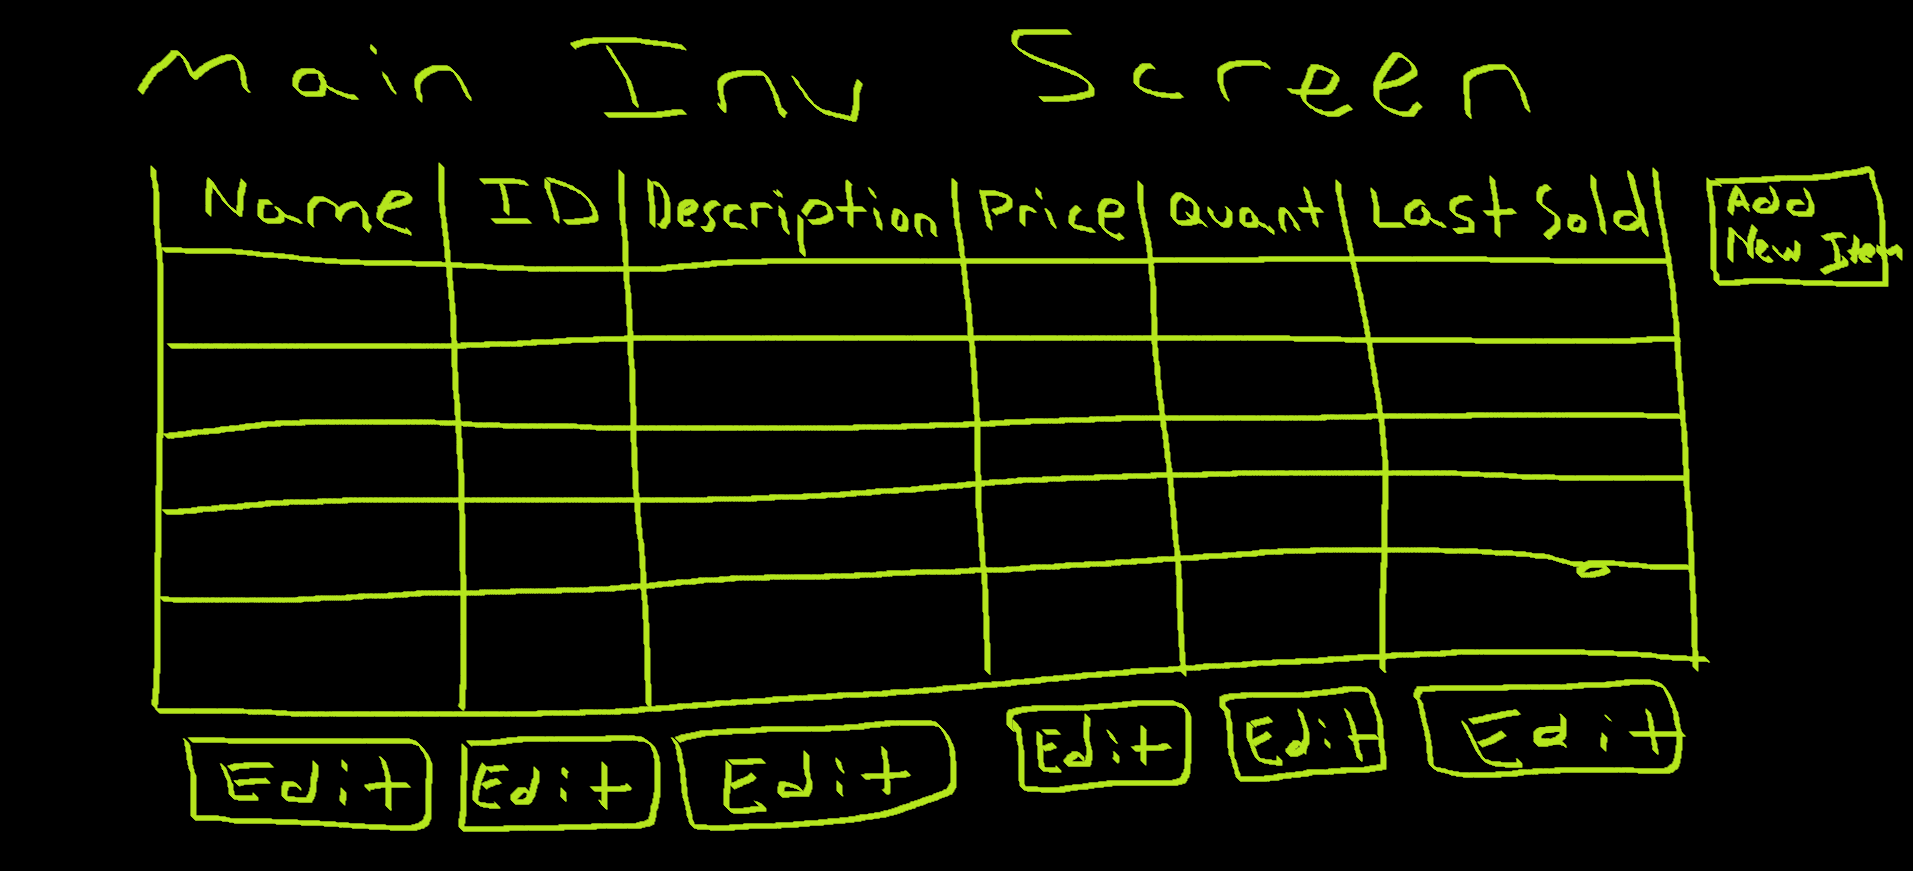 Main Inv Screen
Name ID Description Price Quant Last Sold
Add
New Item
Edit Edit Edit Edit Edit Edit